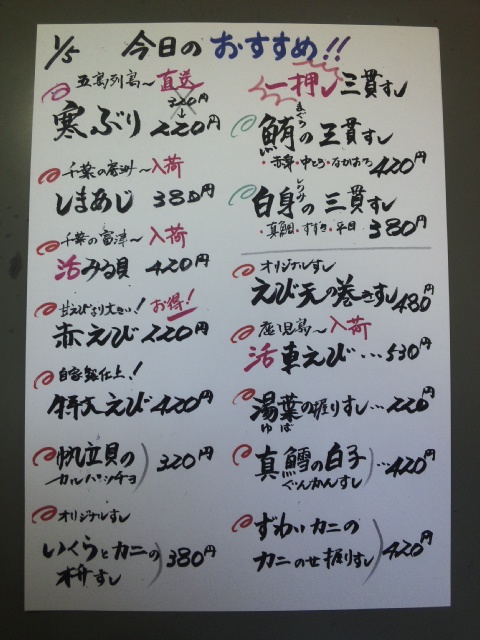 1/5 今日のおすすめ!!
五島列島〜直送
320円
↓
寒ぶり 220円
千葉の 〜入荷
しまあじ 380円
千葉の富津〜入荷
活みる貝 420円
甘えびより大きい! お得!
赤えび 220円
自家製仕上!
特大えび 420円
帆立貝の
カルパッチョ 320円
オリジナルすし
いくらとカニの
枡すし 380円
一押し 三貫すし
まぐろ
鮪の三貫すし
・赤身・中とろ・ねぎとろ 420円
しろみ
白身の三貫すし
・真鯛・すずき・平目 380円
オリジナルすし
えび天の巻きすし 480円
鹿児島〜入荷
活車えび・・・530円
湯葉の握りすし・・・220円
ゆば
真鱈の白子
ぐんかんすし ・・・420円
ずわいカニの
カニのせ握りすし 420円